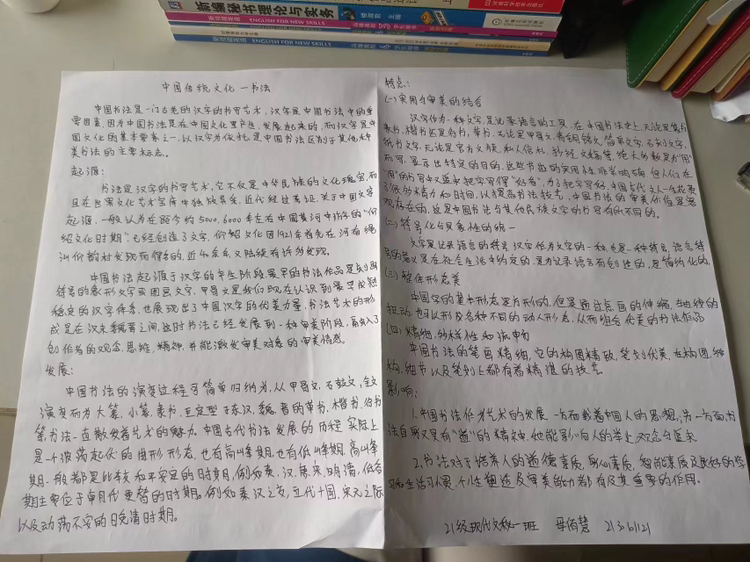 新编秘书理论与实务
杨剑宇 主编
ENGLISH FOR NEW SKILLS
ENGLISH FOR NEW SKILLS
中国传统文化—书法
中国书法是一门古老的汉字的书写艺术，汉字是中国书法中的重
要因素，因为中国书法是在中国文化里产生、发展起来的，而汉字是中
国文化的基本要素之一，以汉字为依托是中国书法区别于其他种
类书法的主要标志。
起源：
书法是汉字的书写艺术，它不仅是中华民族的文化瑰宝，而
且在世界文化艺术宝库中独放异采，近代经过考证，关于中国文字
起源，一般认为在距今约5000、6000年左右中国黄河中游的“仰
韶文化时期”，已经创造了文字，仰韶文化因1921年首先在河南渑
池仰韶村发现而得名的，近40余年又陆续有许多发现。
中国书法起源于汉字的产生阶段最早的书法作品是
符号的象形文字或图画文字，甲骨文是我们现在认识到最早成熟
稳定的汉字体系，也展现出了中国汉字的优美力量，书法艺术的形
成是在汉末魏晋之间，这时书法已经发展到一种审美阶段，融入了
创作者的观念、思维、精神，并能激发审美对象的审美情感。
发展：
中国书法的演变过程可简单归纳为，从甲骨文、石鼓文、金文
演变而为大篆、小篆、隶书，至定型于东汉、魏、晋的草书、楷书、行书
等，书法一直散发着艺术的魅力。中国古代书法发展的历程实际上
是一个波荡起伏的曲形形态，也有高峰期，也有低峰期，高峰
期一般都是比较和平安定的时期，例如秦、汉、唐宋、明清，低谷
期主要位于朝代更替的时期。例如秦汉之交，五代十国，宋元之际
以及动荡不安的晚清时期。
特点：
(一)实用与审美的结合
汉字作为一种文字，是记录语言的工具，在中国书法史上，无论是篆书
隶书，楷书还是行书、草书，无论是甲骨文，青铜铭文，简帛文字，石刻文字，
纸书文字，无论是官方文牍，私人信札，抄经，文稿等，绝大多数是为“用”
而写，显示出特定的目的，这些书迹的实用性非常明确，但人们在
“用”的书写中又追求把字写得“好看”，为了把字写好，中国古代文人一生花费
了很多精力和时间，以提高书法技艺，中国书法的审美价值是客
观存在的，这是中国书法与其他民族文字的书写有所不同的。
(二)符号化与象形性的统一
文字是记录语言的符号，汉字作为文字的一种，也是一种符号，语言符
号的意义是在社会生活中约定的，是为记录语言而创造的，是简约化的。
(三)整体形态美
中国字的基本形态是方形的，但是通过点画的伸缩、轴线的
扭动，也可以形成各种不同的动人形态，从而组合优美的书法作品
(四)精细、多样性和流畅
中国书法的笔画精细，它的构图精致，笔划优美，在构图、结
构、细节以及笔划上都有着精湛的技艺
影响：
1.中国书法作为艺术的发展，一方面载着中国人的思想，另一方面，书
法自身又具有“道”的精神，他能影响人的
2.书法对于培养人的道德素质，身心素质，智能素质及良好的学
习和生活习惯，个性塑造及审美能力都有及其重要的作用。
21级现代文秘一班